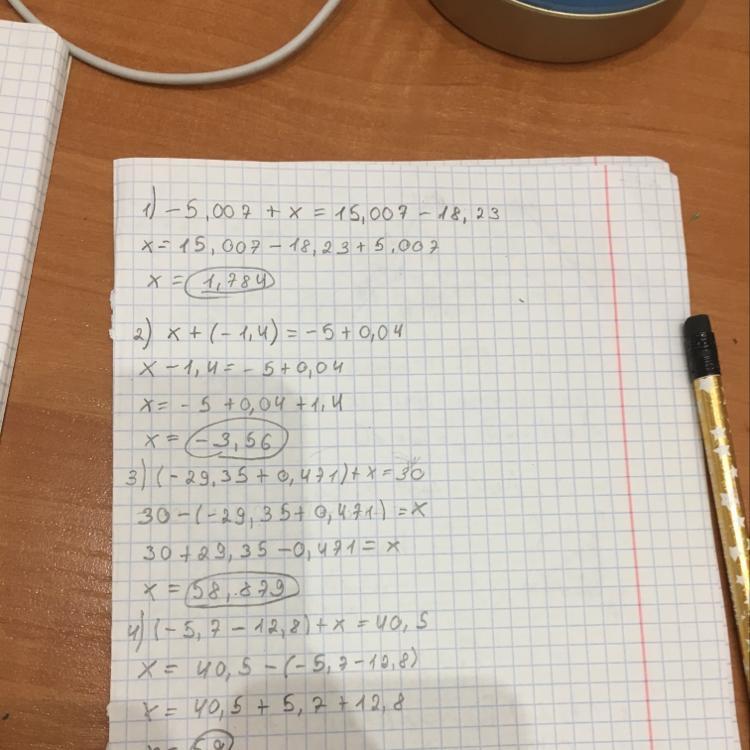 1) -5,007 + x = 15,007 - 18,23
x = 15,007 - 18,23 + 5,007
x = 1,784
2) x + (-1,4) = -5 + 0,04
x - 1,4 = -5 + 0,04
x = -5 + 0,04 + 1,4
x = -3,56
3) (-29,35 + 0,471) + x = 30
30 - (-29,35 + 0,471) = x
30 + 29,35 - 0,471 = x
x = 58,879
4) (-5,7 - 12,8) + x = 40,5
x = 40,5 - (-5,7 - 12,8)
x = 40,5 + 5,7 + 12,8
x = 59